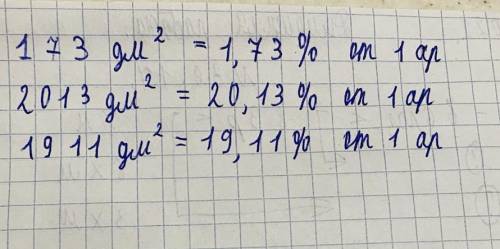 173 дм² = 1,73% от 1 ар
2013 дм² = 20,13% от 1 ар
1911 дм² = 19,11% от 1 ар